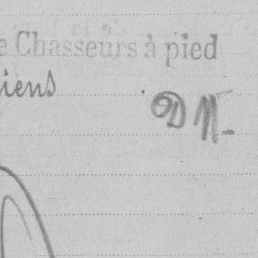 e Chasseurs à pied
iens
D M